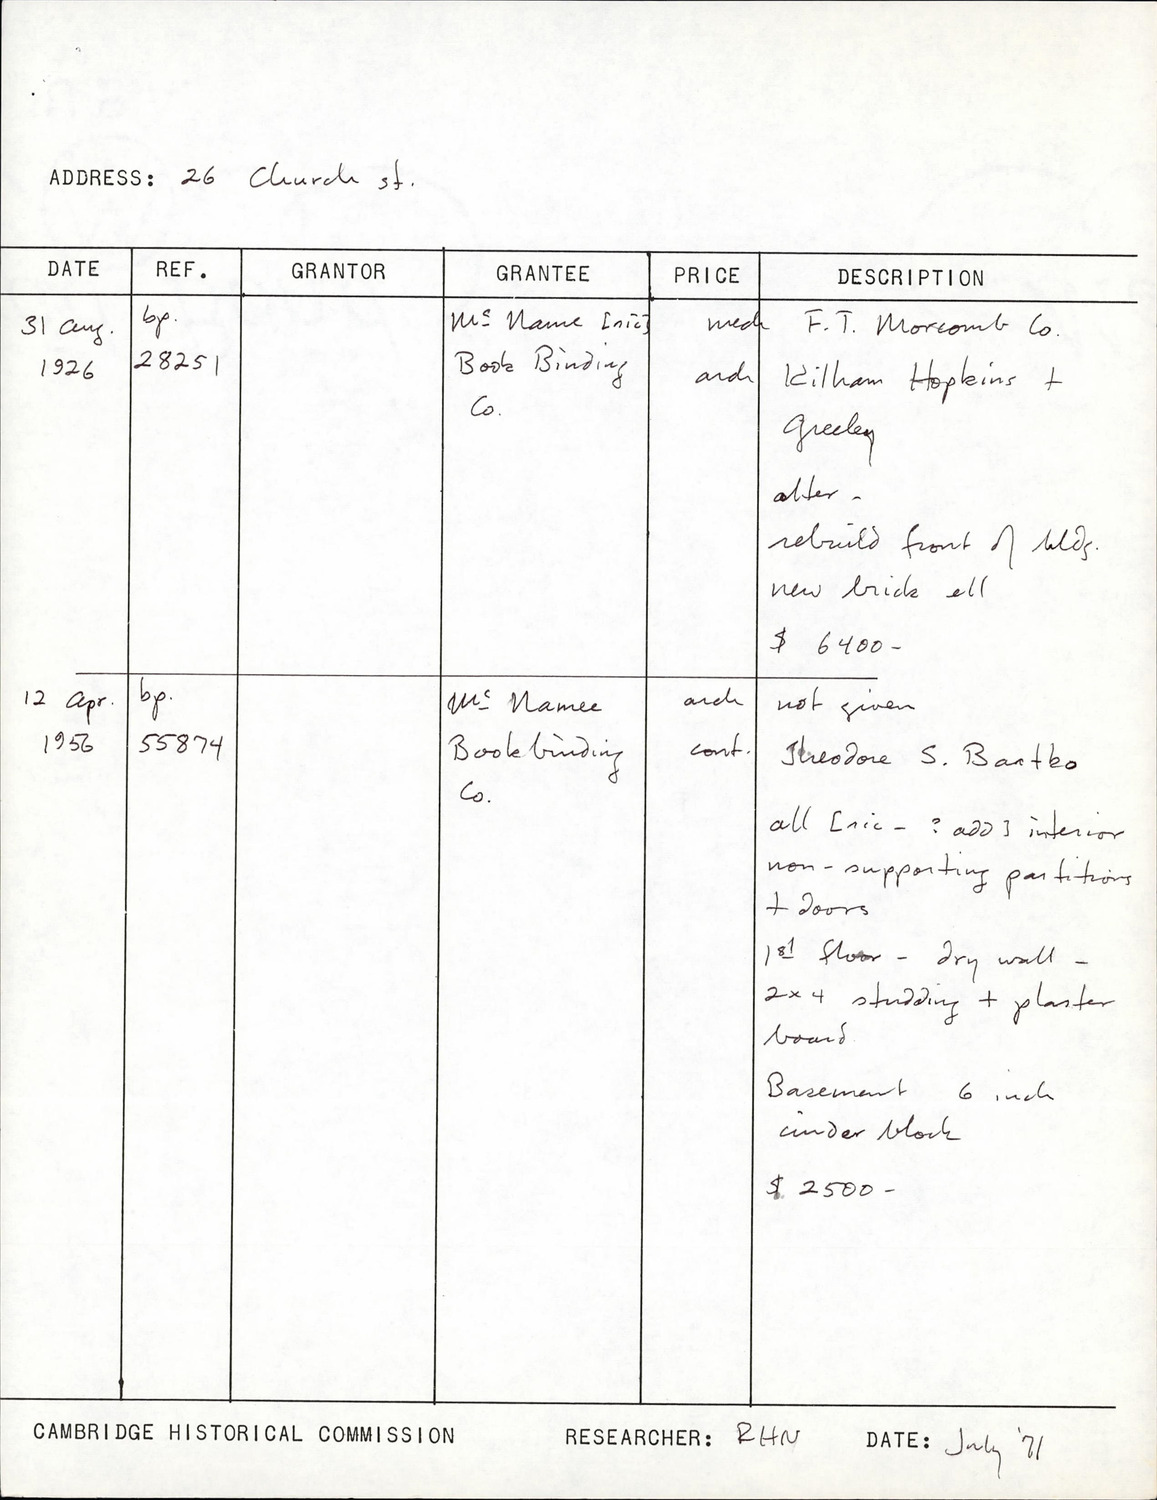 ADDRESS: 26 Church st.
DATE REF. GRANTOR GRANTEE PRICE DESCRIPTION
31 Aug. bp. Mc Name [sic] mech F. T. Morcomb Co.
1926 28251 Book Binding arch Kilham Hopkins +
Co. Greeley
alter -
rebuild front of bldg.
new brick ell
$ 6400-
12 Apr. bp. Mc Namee arch not given
1956 55874 Bookbinding cont. Theodore S. Bartko
Co.
all [sic - ? add] interior
non-supporting partitions
+ doors
1st floor - dry wall -
2x4 studding + plaster
board
Basement 6 inch
cinder block
$ 2500-
CAMBRIDGE HISTORICAL COMMISSION RESEARCHER: RHN DATE: July '71